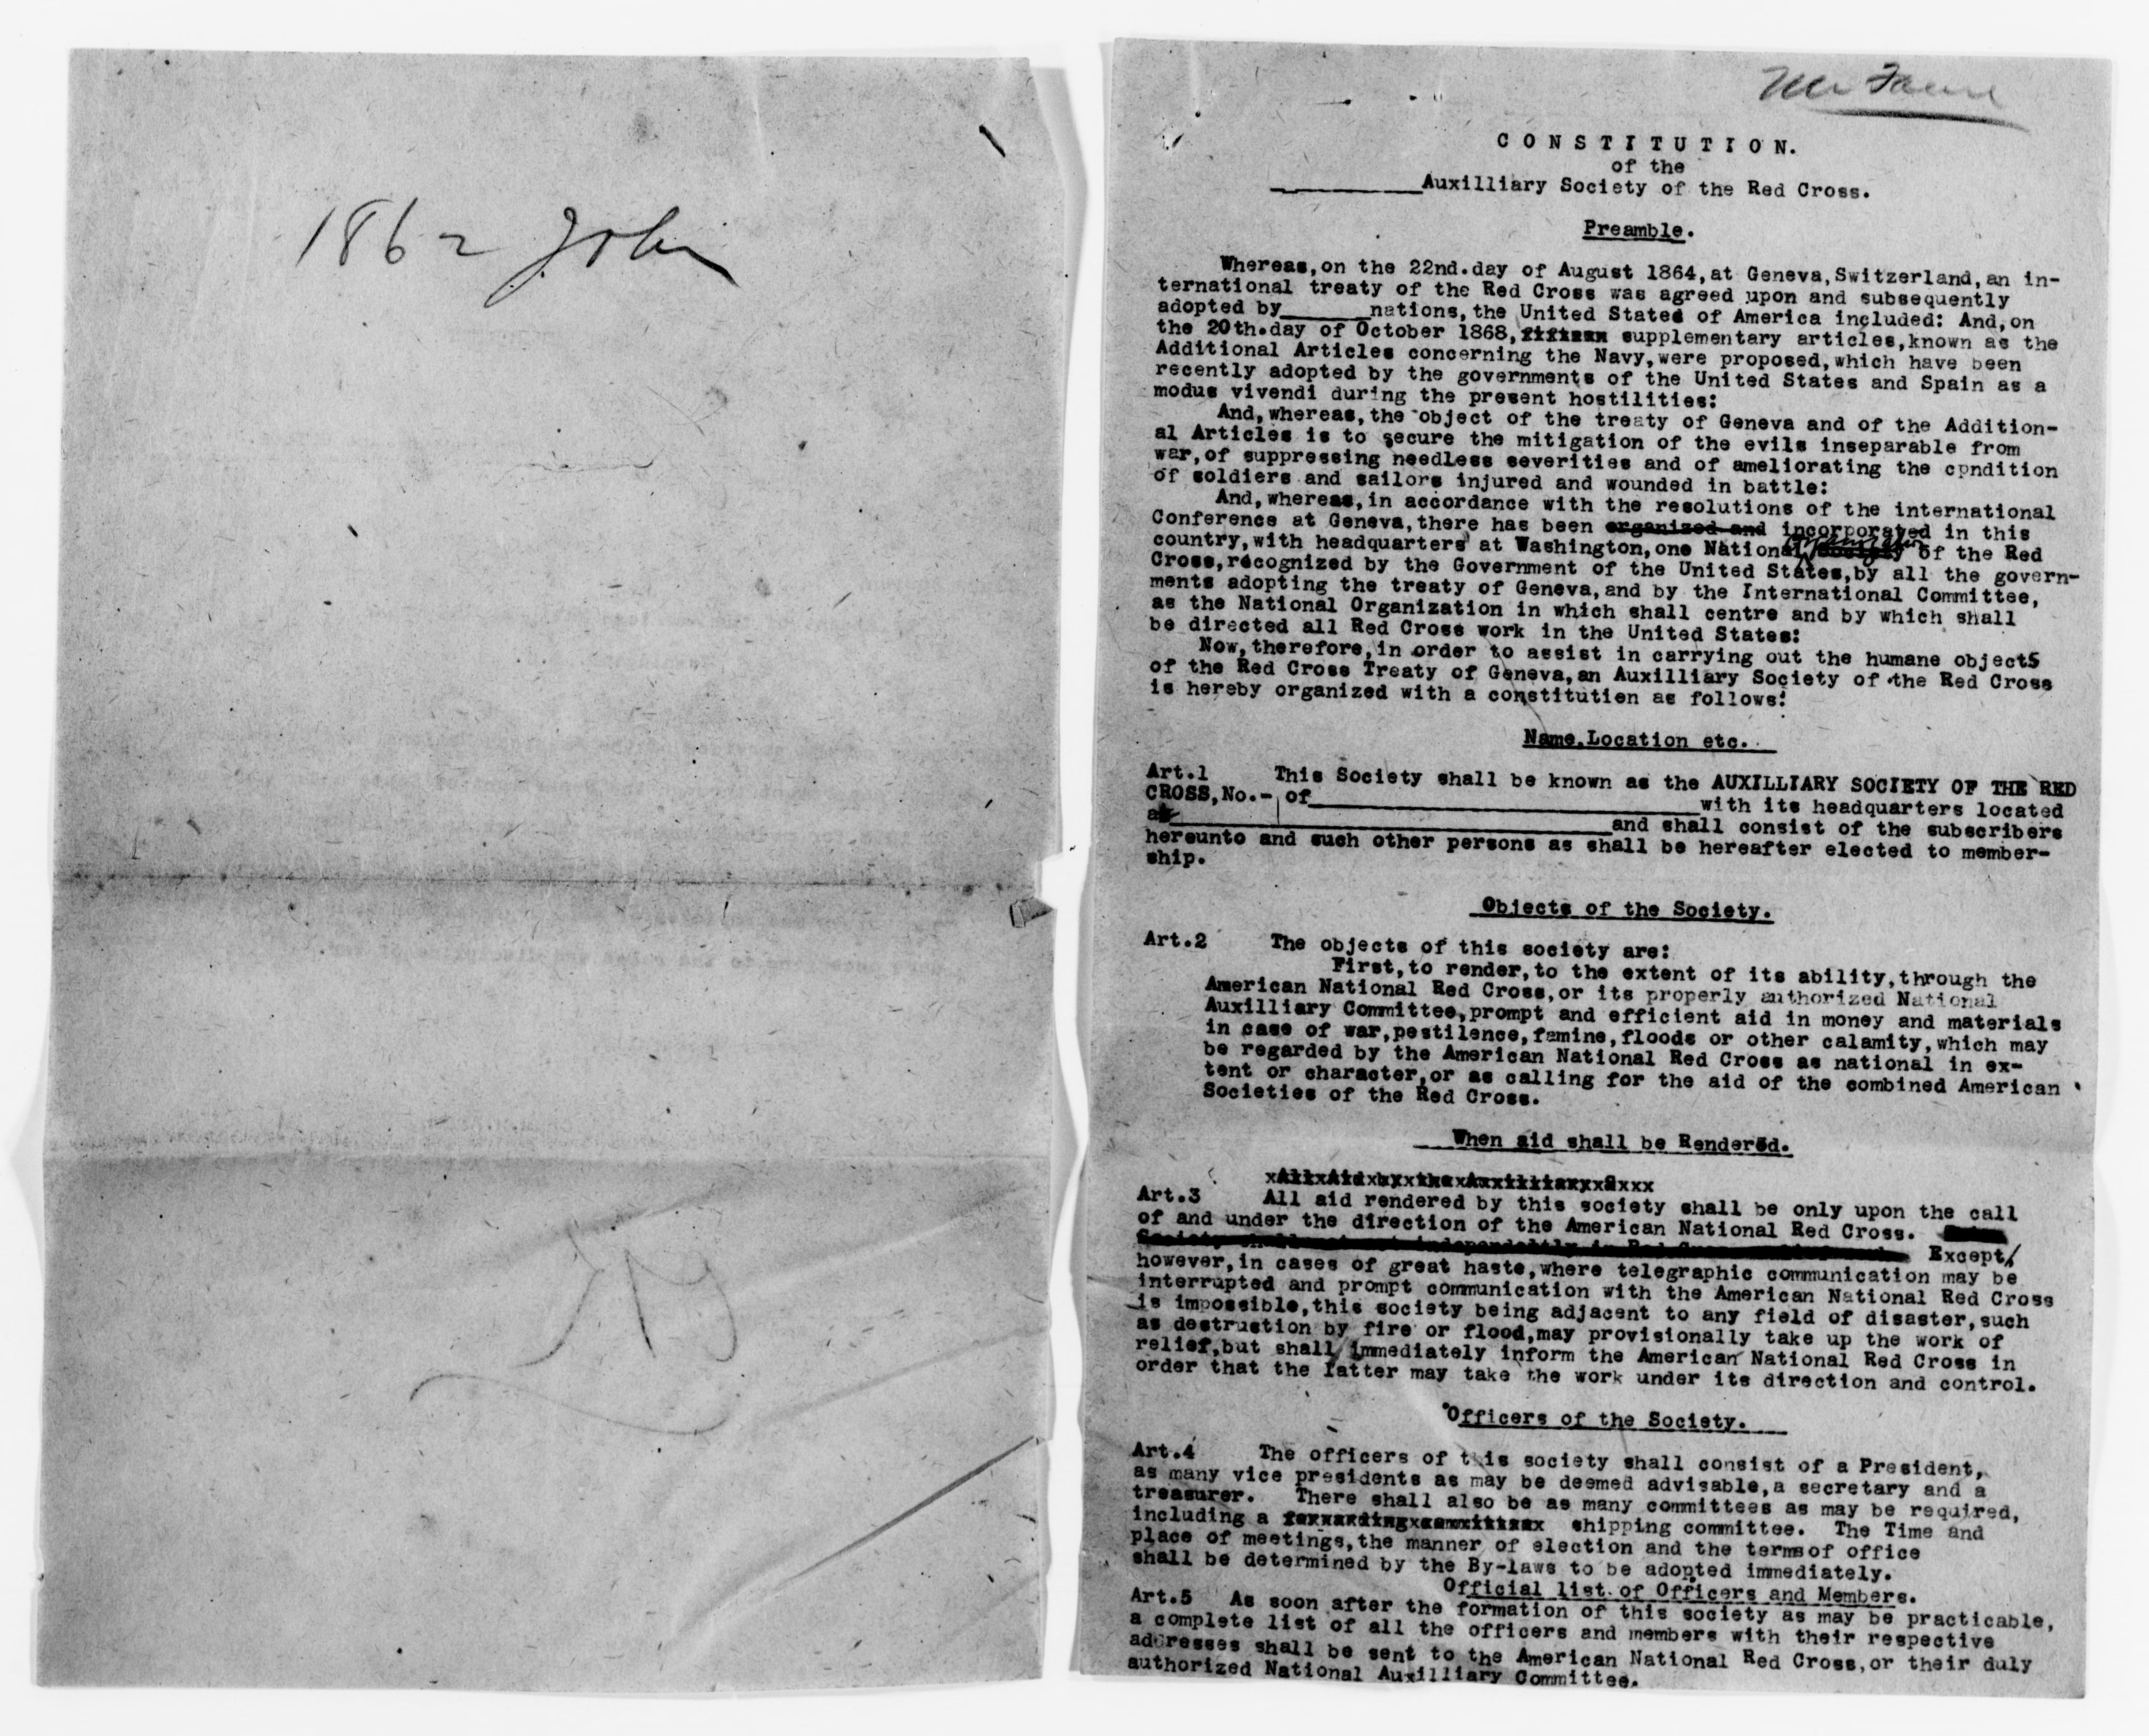 1862 John
CONSTITUTION.
of the
________Auxilliary Society of the Red Cross.
Preamble.
Whereas,on the 22nd.day of August 1864,at Geneva,Switzerland,an in-
ternational treaty of the Red Cross was agreed upon and subsequently
adopted by______nations,the United States of America included: And,on
the 20th.day of October 1868,fifteen supplementary articles,known as the
Additional Articles concerning the Navy,were proposed,which have been
recently adopted by the governments of the United States and Spain as a
modus vivendi during the present hostilities:
And,whereas,the object of the treaty of Geneva and of the Addition-
al Articles is to secure the mitigation of the evils inseparable from
war,of suppressing needless severities and of ameliorating the cpndition
of soldiers and sailors injured and wounded in battle:
And,whereas,in accordance with the resolutions of the international
Conference at Geneva,there has been organized and incorporated in this
country,with headquarters at Washington,one National Organization Society of the Red
Cross,recognized by the Government of the United States,by all the govern-
ments adopting the treaty of Geneva,and by the International Committee,
as the National Organization in which shall centre and by which shall
be directed all Red Cross work in the United States:
Now,therefore,in order to assist in carrying out the humane objects
of the Red Cross Treaty of Geneva,an Auxilliary Society of the Red Cross
is hereby organized with a constitutien as follows:
Name.Location etc.
Art.1 This Society shall be known as the AUXILLIARY SOCIETY OF THE RED
CROSS,No.- of__________________________with its headquarters located
at______________________________and shall consist of the subscribers
hereunto and such other persons as shall be hereafter elected to member-
ship.
Objects of the Society.
Art.2 The objects of this society are:
First,to render,to the extent of its ability,through the
American National Red Cross,or its properly authorized National
Auxilliary Committee,prompt and efficient aid in money and materials
in case of war,pestilence,famine,floods or other calamity,which may
be regarded by the American National Red Cross as national in ex-
tent or character,or as calling for the aid of the combined American
Societies of the Red Cross.
When aid shall be Rendered.
xAllxAidxbyxthexAuxilliaryxSxxx
Art.3 All aid rendered by this society shall be only upon the call
of and under the direction of the American National Red Cross.
Society shall not act independeltly in Red Cross Except,
however,in cases of great haste,where telegraphic communication may be
interrupted and prompt communication with the American National Red Cross
is impossible,this society being adjacent to any field of disaster,such
as destruction by fire or flood,may provisionally take up the work of
relief,but shall immediately inform the American National Red Cross in
order that the latter may take the work under its direction and control.
Officers of the Society.
Art.4 The officers of this society shall consist of a President,
as many vice presidents as may be deemed advisable,a secretary and a
treasurer. There shall also be as many committees as may be required,
including a forwardingxcommitteex shipping committee. The Time and
place of meetings,the manner of election and the termsof office
shall be determined by the By-laws to be adopted immediately.
Official list of Officers and Members.
Art.5 As soon after the formation of this society as may be practicable,
a complete list of all the officers and members with their respective
addresses shall be sent to the American National Red Cross,or their duly
authorized National Auxilliary Committee.